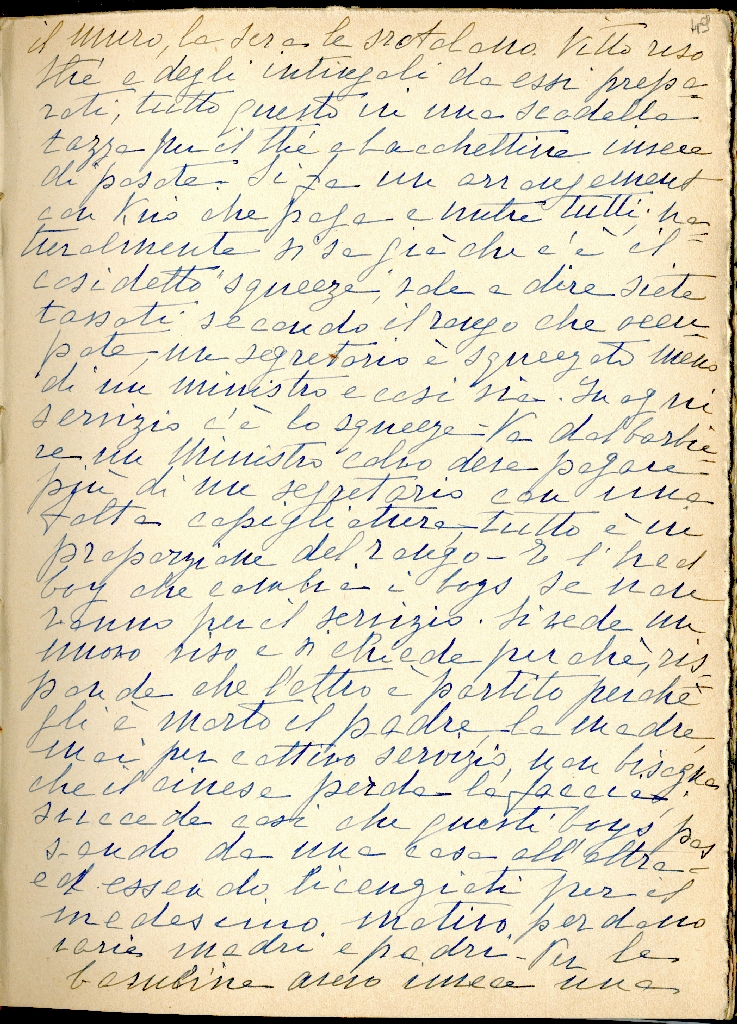 49
il muro, la sera le srotolano. Vitto riso
thé e degli intingoli da essi prepa-
rati, tutto questo in una scodella
tazza per il thé e bacchettine invece
di posate. Si fa un arrangement
con Kuo che paga e nutre tutti; na-
turalmente si sa già che c'è il
cosidetto "squeeze", vale a dire siete
tassati secondo il rango che occu
pate, un segretario è squeezato meno
di un ministro e così via. In ogni
servizio c'è lo squeeze - Va dal barbie-
re un Ministro calvo deve pagare
più di un segretario con una
folta capigliatura, tutto è in
proporzione del rango - E l'head
boy che cambia i boys se non
vanno per il servizio. Si vede un
nuovo viso e si chiede perchè, ris-
ponde che l'altro è partito perchè
gli è morto il padre, la madre,
mai per cattivo servizio, non bisogna
che il cinese perda la faccia,
succede così che questi boys, pas
sando da una casa all'altra-
ed essendo licenziati per il
medesimo motivo perdono
varie madri e padri - Per la
bambina avevo invece una